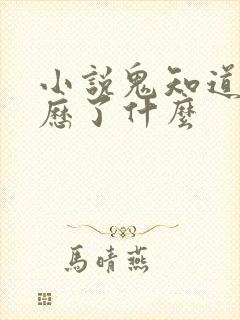 小說鬼知道
歷了什麼
馬晴燕